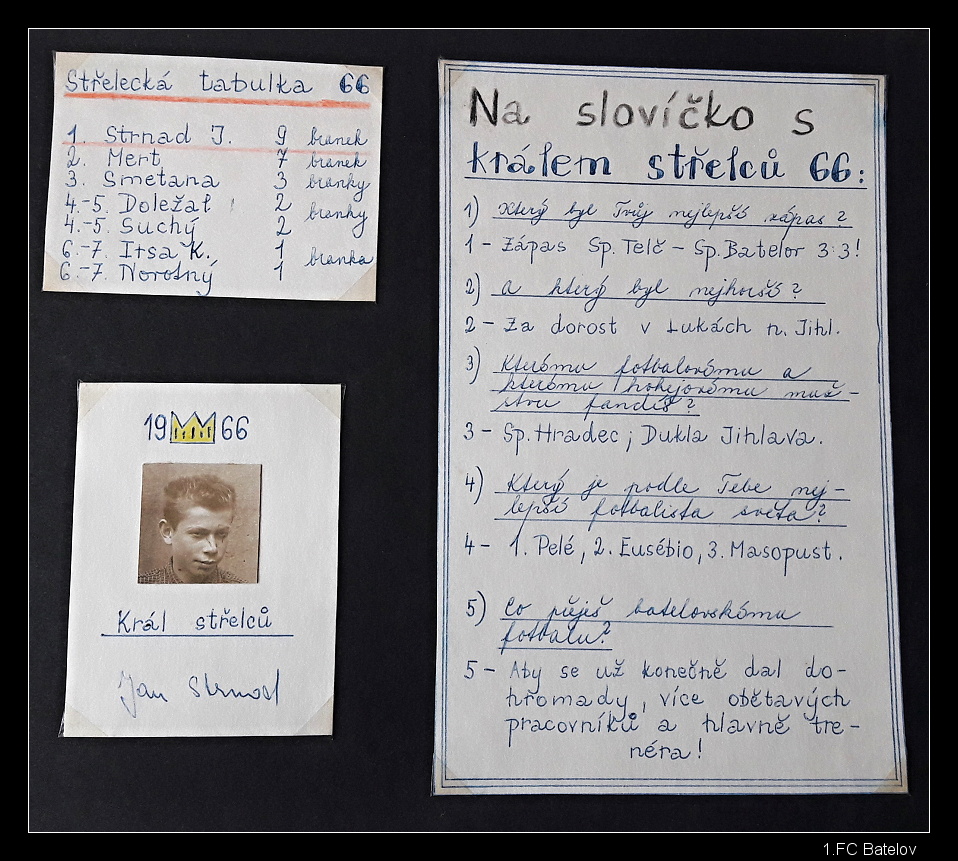 Střelecká tabulka 66
1. Strnad J. 9 branek
2. Mert 7 branek
3. Smetana 3 branky
4.-5. Doležal 2 branky
4.-5. Suchý 2
6.-7. Irsa K. 1 branka
6.-7. Novotný 1
1966
Král střelců
Jan Strnad
Na slovíčko s
králem střelců 66:
1) Který byl Tvůj nejlepší zápas?
1 - Zápas Sp. Telč - Sp. Batelov 3:3!
2) A který byl nejhorší?
2 - Za dorost v Lukách n. Jihl.
3) Kterému fotbalovému a
kterému hokejovému muž-
stvu fandíš?
3 - Sp. Hradec; Dukla Jihlava.
4) Který je podle Tebe nej-
lepší fotbalista světa?
4 - 1. Pelé, 2. Eusébio, 3. Masopust.
5) Co přeješ batelovskému
fotbalu?
5 - Aby se už konečně dal do-
hromady, více obětavých
pracovníků a hlavně tre-
néra!
1.FC Batelov